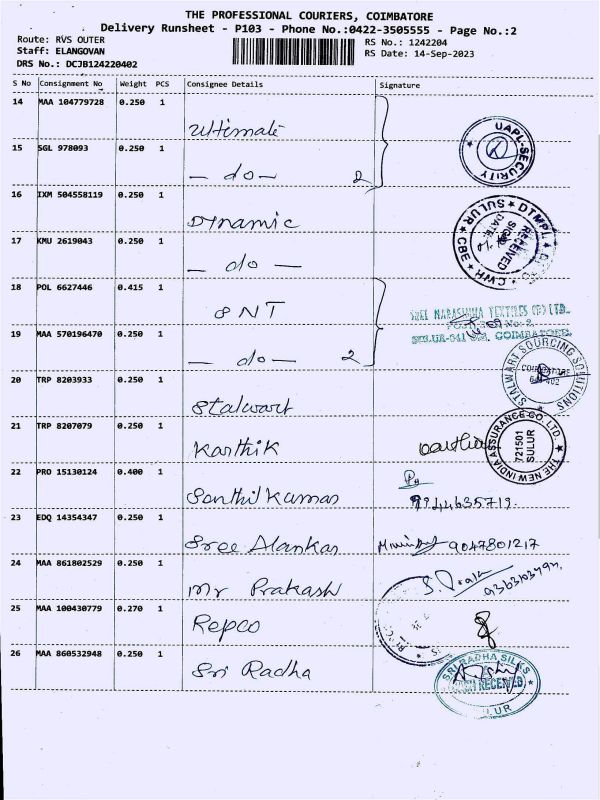 THE PROFESSIONAL COURIERS, COIMBATORE
Delivery Runsheet - P103 - Phone No.:0422-3505555 - Page No.:2
Route: RVS OUTER
RS No.: 1242204
Staff: ELANGOVAN
RS Date: 14-Sep-2023
DRS No.: DCJB124220402
S No Consignment No Weight PCS Consignee Details Signature
14 MAA 104779728 0.250 1 Ultimate
UAPL-SECURITY
15 SGL 978093 0.250 1 - do - 2
16 IXM 504558119 0.250 1 Dynamic
SULUR DTMPL
RECEIVED
SIGN
DATE
CBE CWH
17 KMU 2619043 0.250 1 - do -
18 POL 6627446 0.415 1 SNT
SREE NARASIMHA TEXTILES (P) LTD.,
POST BOX No: 2,
SULUR-641 402, COIMBATORE.
19 MAA 570196470 0.250 1 - do - 2
STALWART SOURCING SOLUTIONS
COIMBATORE
641 402
20 TRP 8203933 0.250 1 Stalwart
21 TRP 8207079 0.250 1 Karthik
THE NEW INDIA ASSURANCE CO. LTD.
721501
SULUR
22 PRO 15130124 0.400 1 Senthil Kumar
9944635719.
23 EDQ 14354347 0.250 1 Sree Alankar
9047801217
24 MAA 861802529 0.250 1 Mr Prakash
25 MAA 100430779 0.270 1 Repco
26 MAA 860532948 0.250 1 Sri Radha
SRI RADHA SILKS
RECEIVED
SULUR